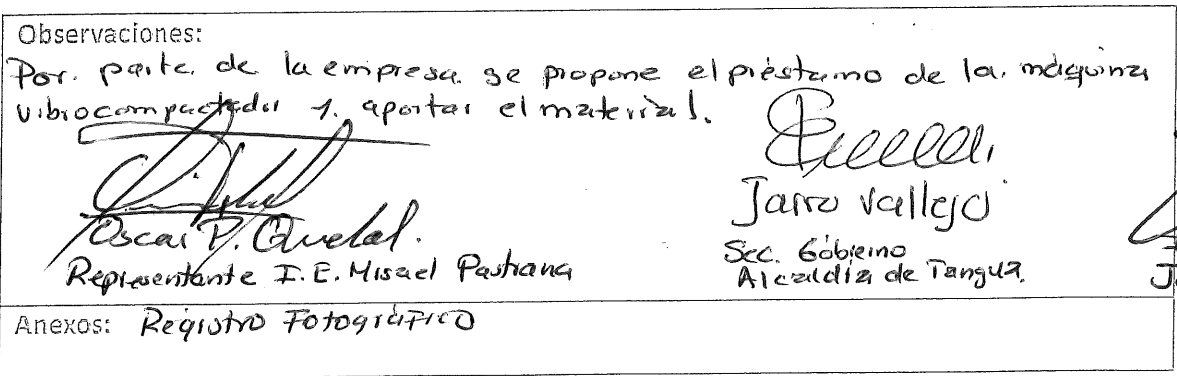 Observaciones:
Por. parte. de la empresa. se propone el préstamo de la. máquina
vibrocompactador 1. aportar el material.
Oscar P. Quelal.
Representante I.E. Misael Pastrana
Jairo Vallejo
Sec. Gobierno
Alcaldía de Tangua.
J.
Anexos: Registro Fotográfico